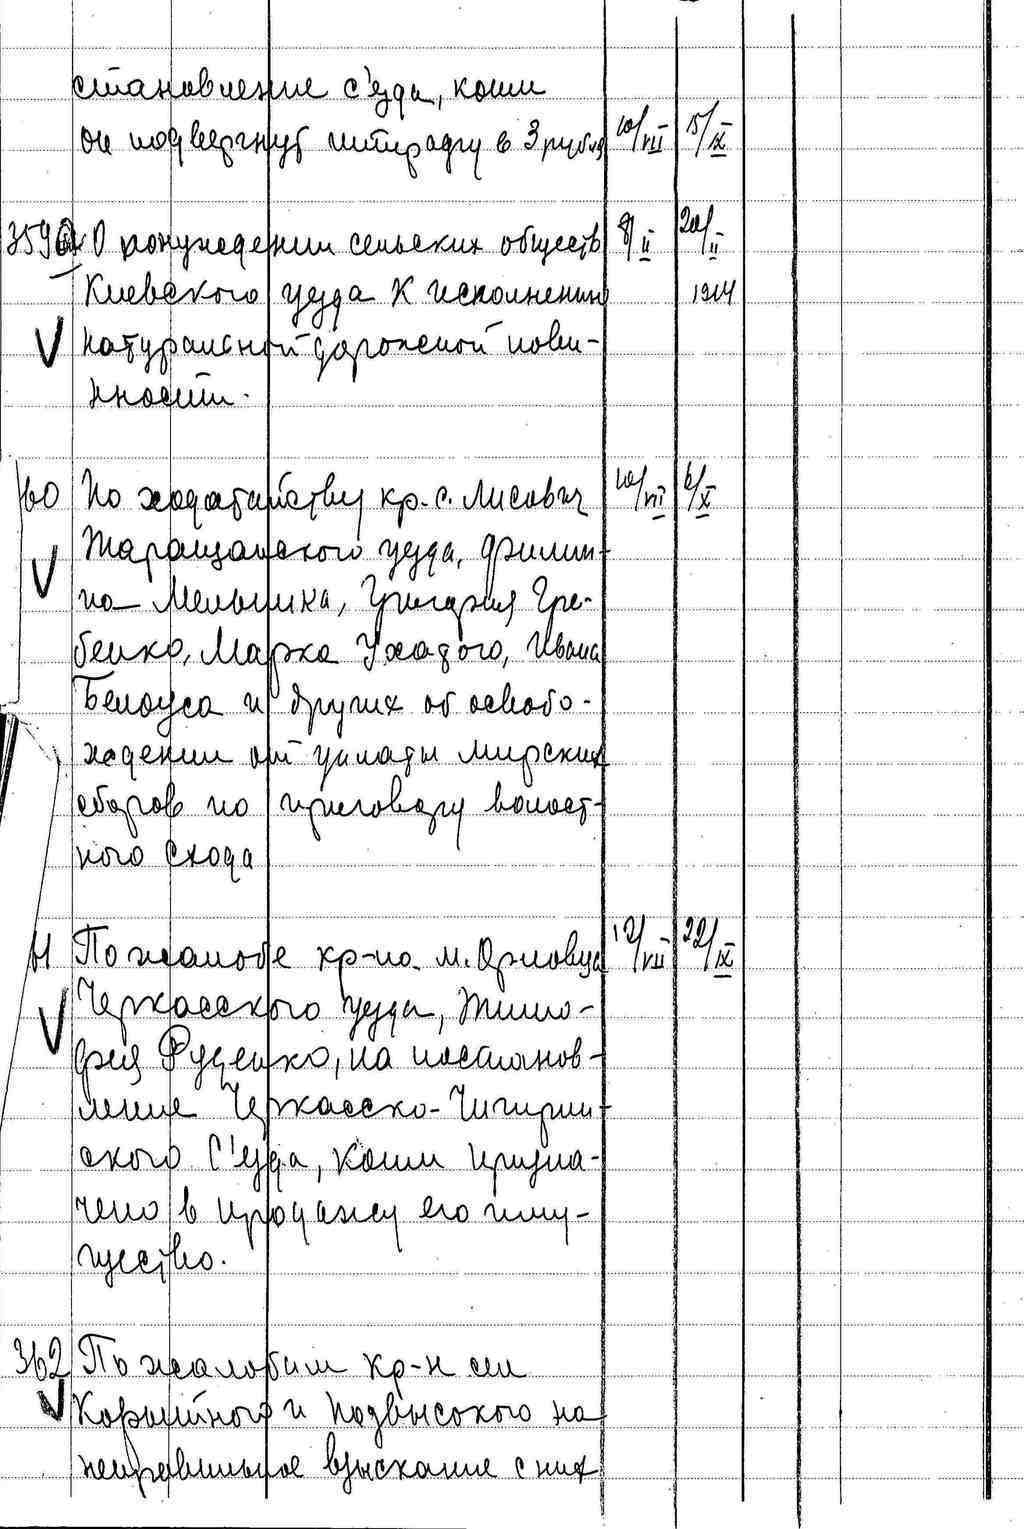 становление с'езда, коим
он подвергнут штрафу в 3 рубля 10/VII 15/IX
359а О понуждении сельских обществ 8/II 20/II
Киевского уезда к исполнению 1914
натуральной дорожной пови-
нности.
60 По ходатайству кр. с. Лисович 10/VII 6/X
Таращанского уезда, Филип-
па Мельника, Григория Гре-
бенко, Марка Ухатого, Ивана
Белоуса и других об освобо-
ждении от уплаты мирских
сборов по приговору волост-
ного схода
61 По жалобе кр-на м. Орловца 12/VII 22/IX
Черкасского уезда, Тимо-
фея Руденко, на постанов-
ление Черкасско-Чигирин-
ского С'езда, коим назна-
чено в продажу его иму-
щество.
362 По жалобам кр-н сел
и Подвысокого на
неправильное взыскание с них